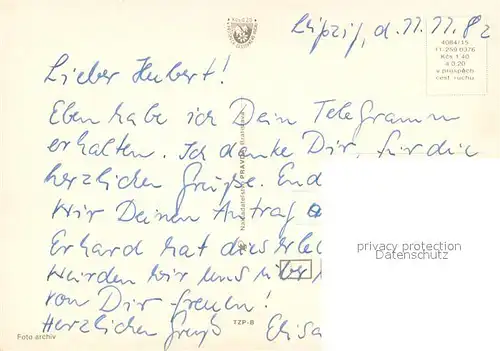 Leipzig, d. 11.11.82
4084/15
11-259 0376
Kčs 1.40
4 0,20
v prospěch
cest. ruchu
Lieber Hubert!
Eben habe ich Dein Telegramm
erhalten. Ich danke Dir, für die
herzlichen Grüße. End
Wir Deinen Antrag
Erhard hat dies
Würden wir uns über
von Dir freuen!
Herzlichen Gruß Elisa
Nakladatelství PRAVDA Bratislava
privacy protection
Datenschutz
TZP-B
Foto archiv